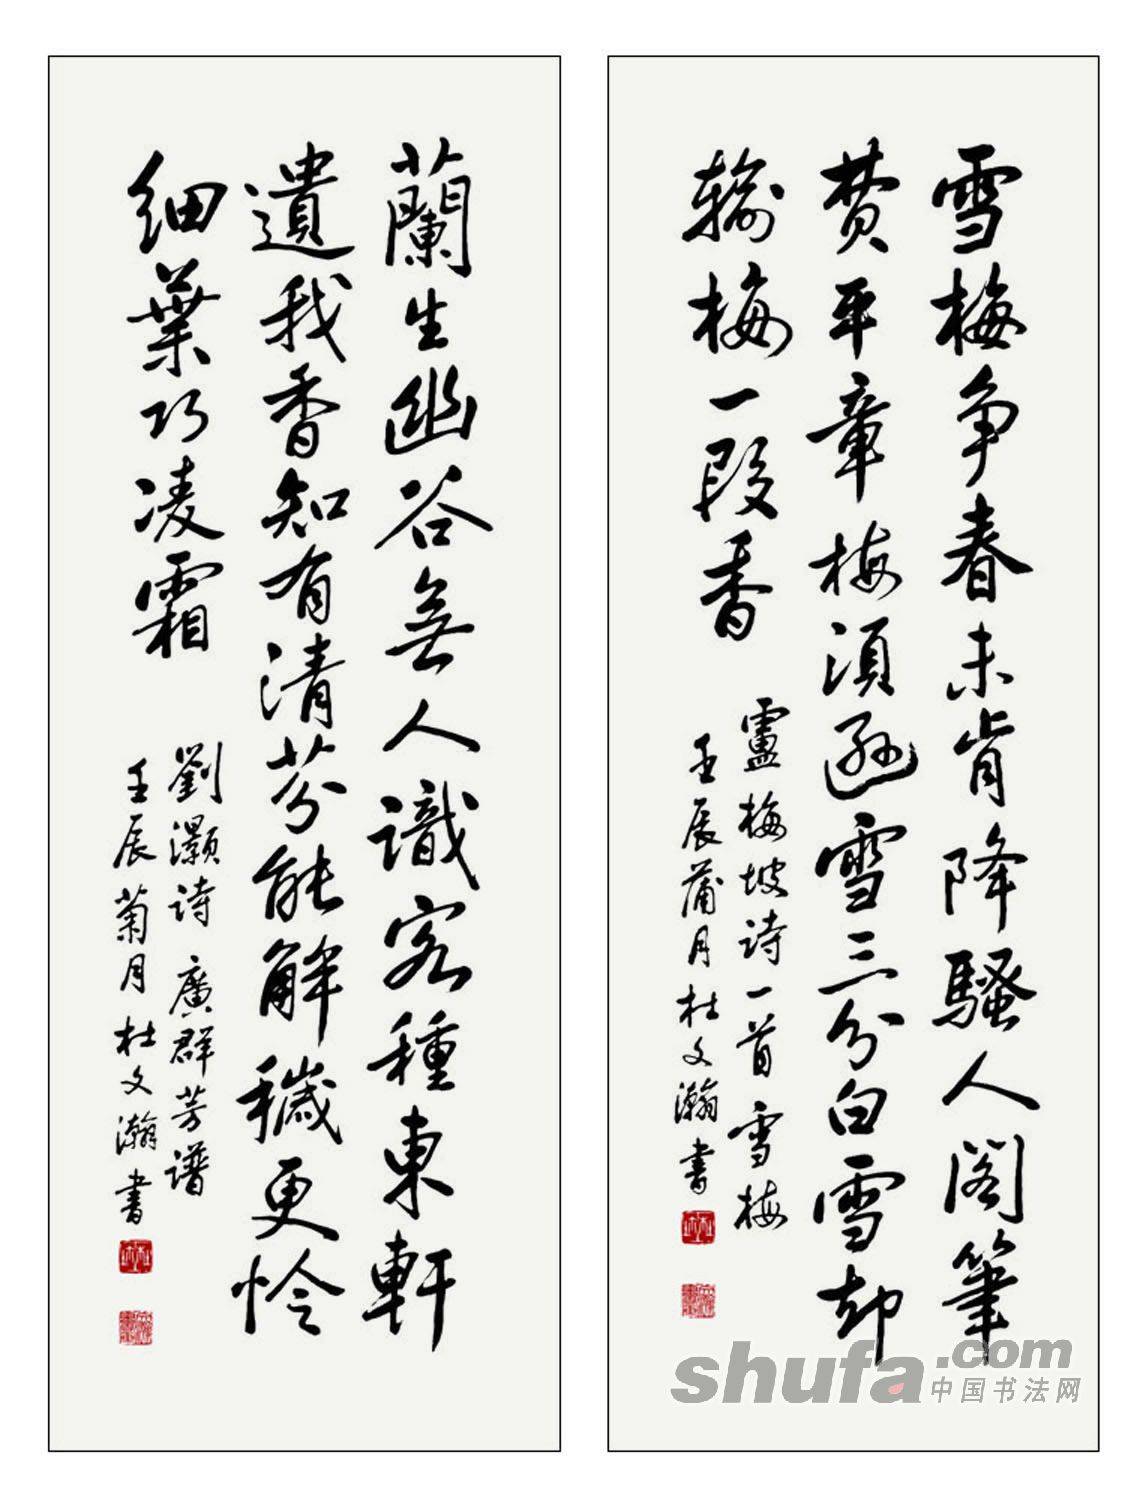 雪梅争春未肯降騷人阁筆
费平章梅須遜雪三分白雪却
输梅一段香
盧梅坡诗一首雪梅
壬辰蒲月杜文瀚書
蘭生幽谷無人識客種東軒
遺我香知有清芬能解穢更怜
细葉巧凌霜
劉灝诗廣群芳譜
壬辰菊月杜文瀚書
shufa.com
中国书法网